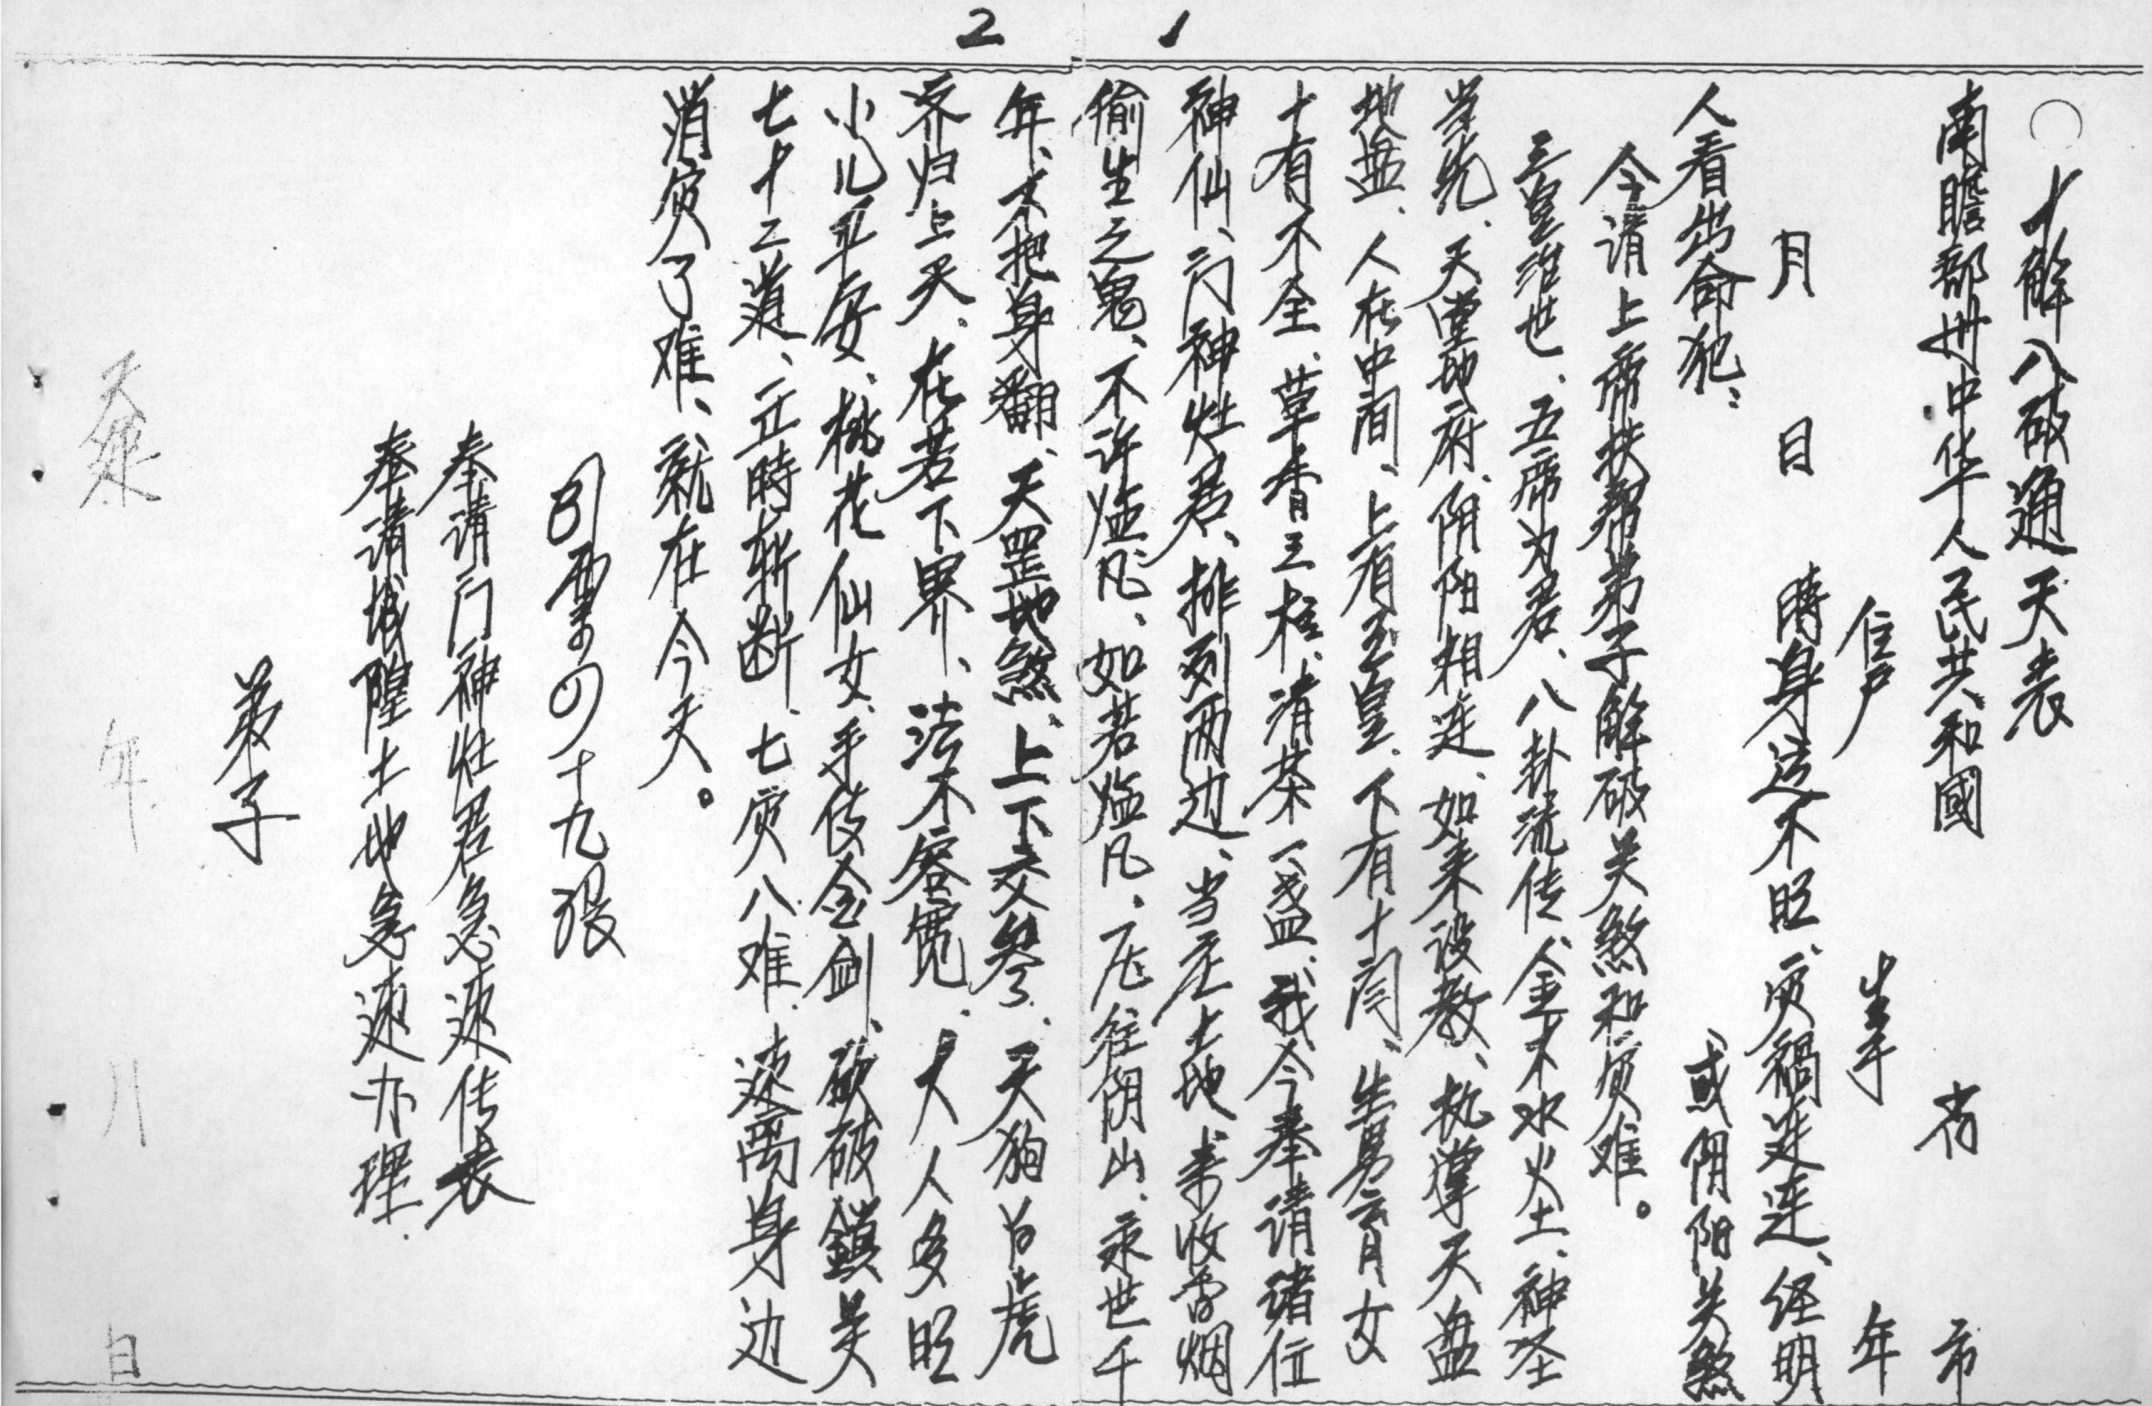 2 1
十解八破通天表
南瞻部州中华人民共和國 省 市
住户 生于 年
月 日 時身运不旺、灾禍连连、经明
人看出命犯: 或阴阳关煞
今请上帝扶帮弟子解破关煞和灾难。
三皇治世、五帝为君、八卦流传、金木水火土、神圣
当先、天堂地府、阴阳相连、如来设教、执掌天盘
地盘、人在中间、上有玉皇、下有十阎、生男育女
十有不全、草香三柱、清茶一盏、我今奉请诸位
神仙、门神灶君、排列两边、当庄土地、来收香烟
偷生之鬼、不许临凡、如若临凡、压往阴山、永世千
年、不把身翻、天罡地煞、上下交参、天狗白虎
齐归上天、在若下界、法不容宽、大人多旺
小儿平安、桃花仙女、手使金剑、砍破鎖关
七十二道、立時斩断、七灾八难、速离身边
消灾了难、就在今天。
引票 十九張
奉请门神灶君急速传表
奉请城隍土地急速办理.
弟子
天 年 月 日